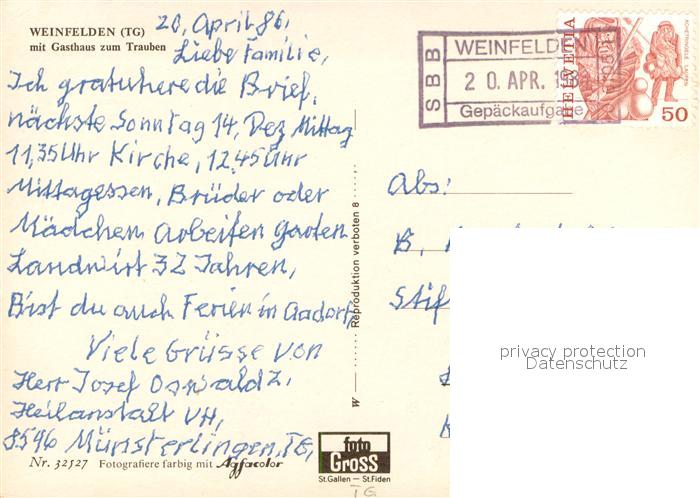 WEINFELDEN (TG)
mit Gasthaus zum Trauben
20, April 86,
Liebe Familie,
Ich gratuhere die Brief,
nächste Sonntag 14, Dez Mittag
11,35 Uhr Kirche, 12,45 Uhr
Mittagessen, Brüder oder
Mädchen Arbeiten Garten
Landwirt 32 Jahren,
Bist du auch Ferien in Aadorf,
Viele Grüsse von
Herr Josef Oswald Z,
Heilanstalt VH,
8596 Münsterlingen, TG,
Nr. 32527 Fotografiere farbig mit Agfacolor
W — Reproduktion verboten 8
foto
GROSS
St.Gallen — St.Fiden
TG
SBB
WEINFELDEN
20. APR. 198
Gepäckaufgabe
HELVETIA
50
Abs:
B,
Stif
privacy protection
Datenschutz